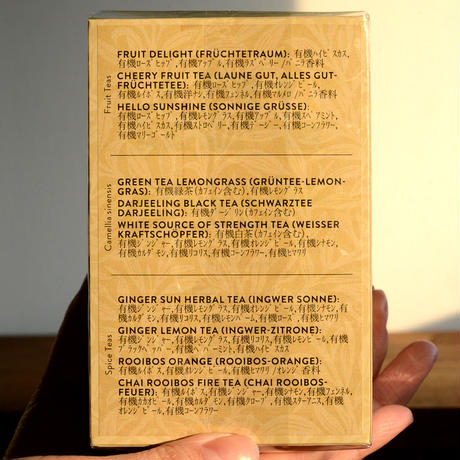 Fruit Teas
FRUIT DELIGHT (FRÜCHTETRAUM): 有機ハイビスカス,
有機ローズヒップ, 有機アップル, 有機ラズベリー/バニラ香料
CHEERY FRUIT TEA (LAUNE GUT, ALLES GUT-
FRÜCHTETEE): 有機ローズヒップ, 有機オレンジピール,
有機ルイボス, 有機洋ナシ, 有機フェンネル, 有機マルメロ/バニラ香料
HELLO SUNSHINE (SONNIGE GRÜSSE):
有機ローズヒップ, 有機レモングラス, 有機アップル, 有機スペアミント,
有機ハイビスカス, 有機ストロベリー, 有機デージー, 有機コーンフラワー,
有機マリーゴールド
Camellia sinensis
GREEN TEA LEMONGRASS (GRÜNTEE-LEMON-
GRAS): 有機緑茶(カフェイン含む), 有機レモングラス
DARJEELING BLACK TEA (SCHWARZTEE
DARJEELING): 有機ダージリン(カフェイン含む)
WHITE SOURCE OF STRENGTH TEA (WEISSER
KRAFTSCHÖPFER): 有機白茶(カフェイン含む),
有機ジンジャー, 有機レモングラス, 有機オレンジピール, 有機シナモン,
有機カルダモン, 有機リコリス, 有機コーンフラワー, 有機ヒマワリ
Spice Teas
GINGER SUN HERBAL TEA (INGWER SONNE):
有機ジンジャー, 有機レモングラス, 有機オレンジピール, 有機シナモン, 有
機カルダモン, 有機リコリス, 有機レモンバーム, 有機ローズ, 有機ヒマワリ
GINGER LEMON TEA (INGWER-ZITRONE):
有機ジンジャー, 有機レモングラス, 有機リコリス, 有機レモンピール, 有機
ブラックペッパー, 有機ペパーミント, 有機ハイビスカス
ROOIBOS ORANGE (ROOIBOS-ORANGE):
有機ルイボス, 有機オレンジピール, 有機ヒマワリ/オレンジ香料
CHAI ROOIBOS FIRE TEA (CHAI ROOIBOS-
FEUER): 有機ルイボス, 有機ジンジャー, 有機シナモン, 有機フェンネル,
有機カカオピール, 有機カルダモン, 有機クローブ, 有機スターアニス, 有機
オレンジピール, 有機コーンフラワー